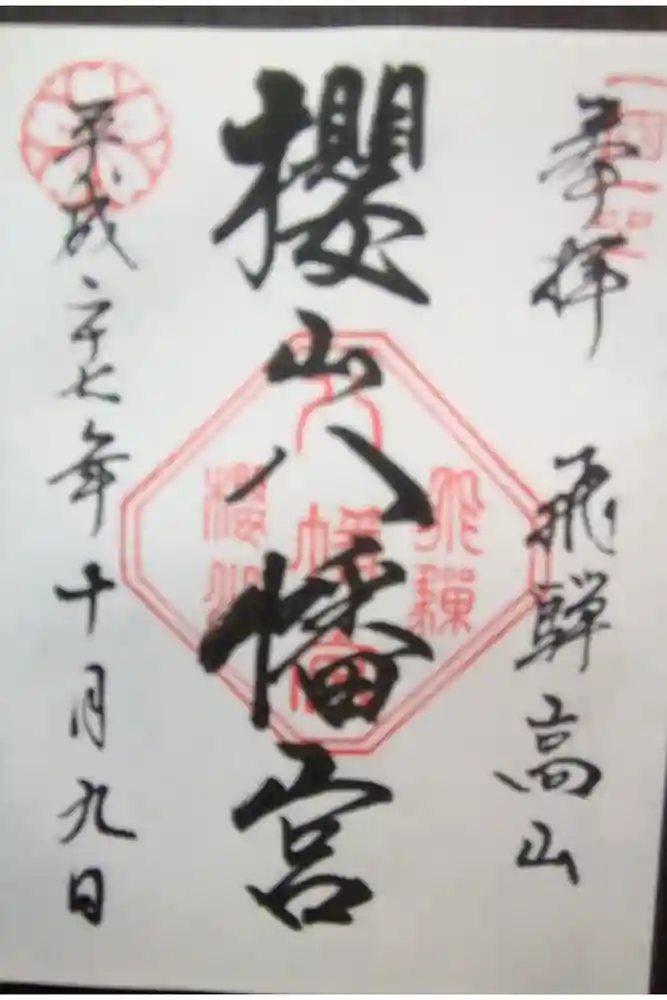 奉拝 飛騨高山
櫻山八幡宮
平成二十七年十月九日
飛騨
八幡宮
櫻山